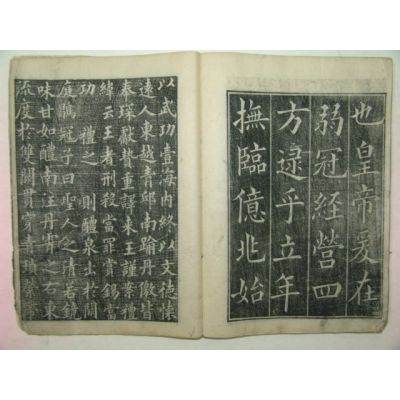 也皇帝爰在
弱冠經營四
方逮乎立年
撫臨億兆始
以武功壹海內終以文德懷
遠人東越青邱南踰丹儌皆
奉琛獻贄重譯來王謹案禮
緯云王者刑殺當罪賞錫當
功禮之則醴泉出於闕
庭鶡冠子曰聖人之清若鏡
味甘如醴南注丹霄之右東
流度於雙闕貫穿青瑣縈帶